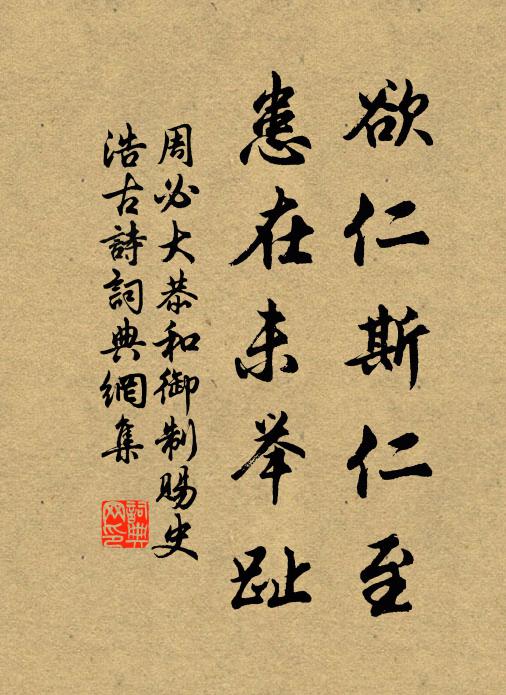 欲仁斯仁至
患在未举趾
周必大恭和御制赐史
浩古詩詞典網集
詞典
网印